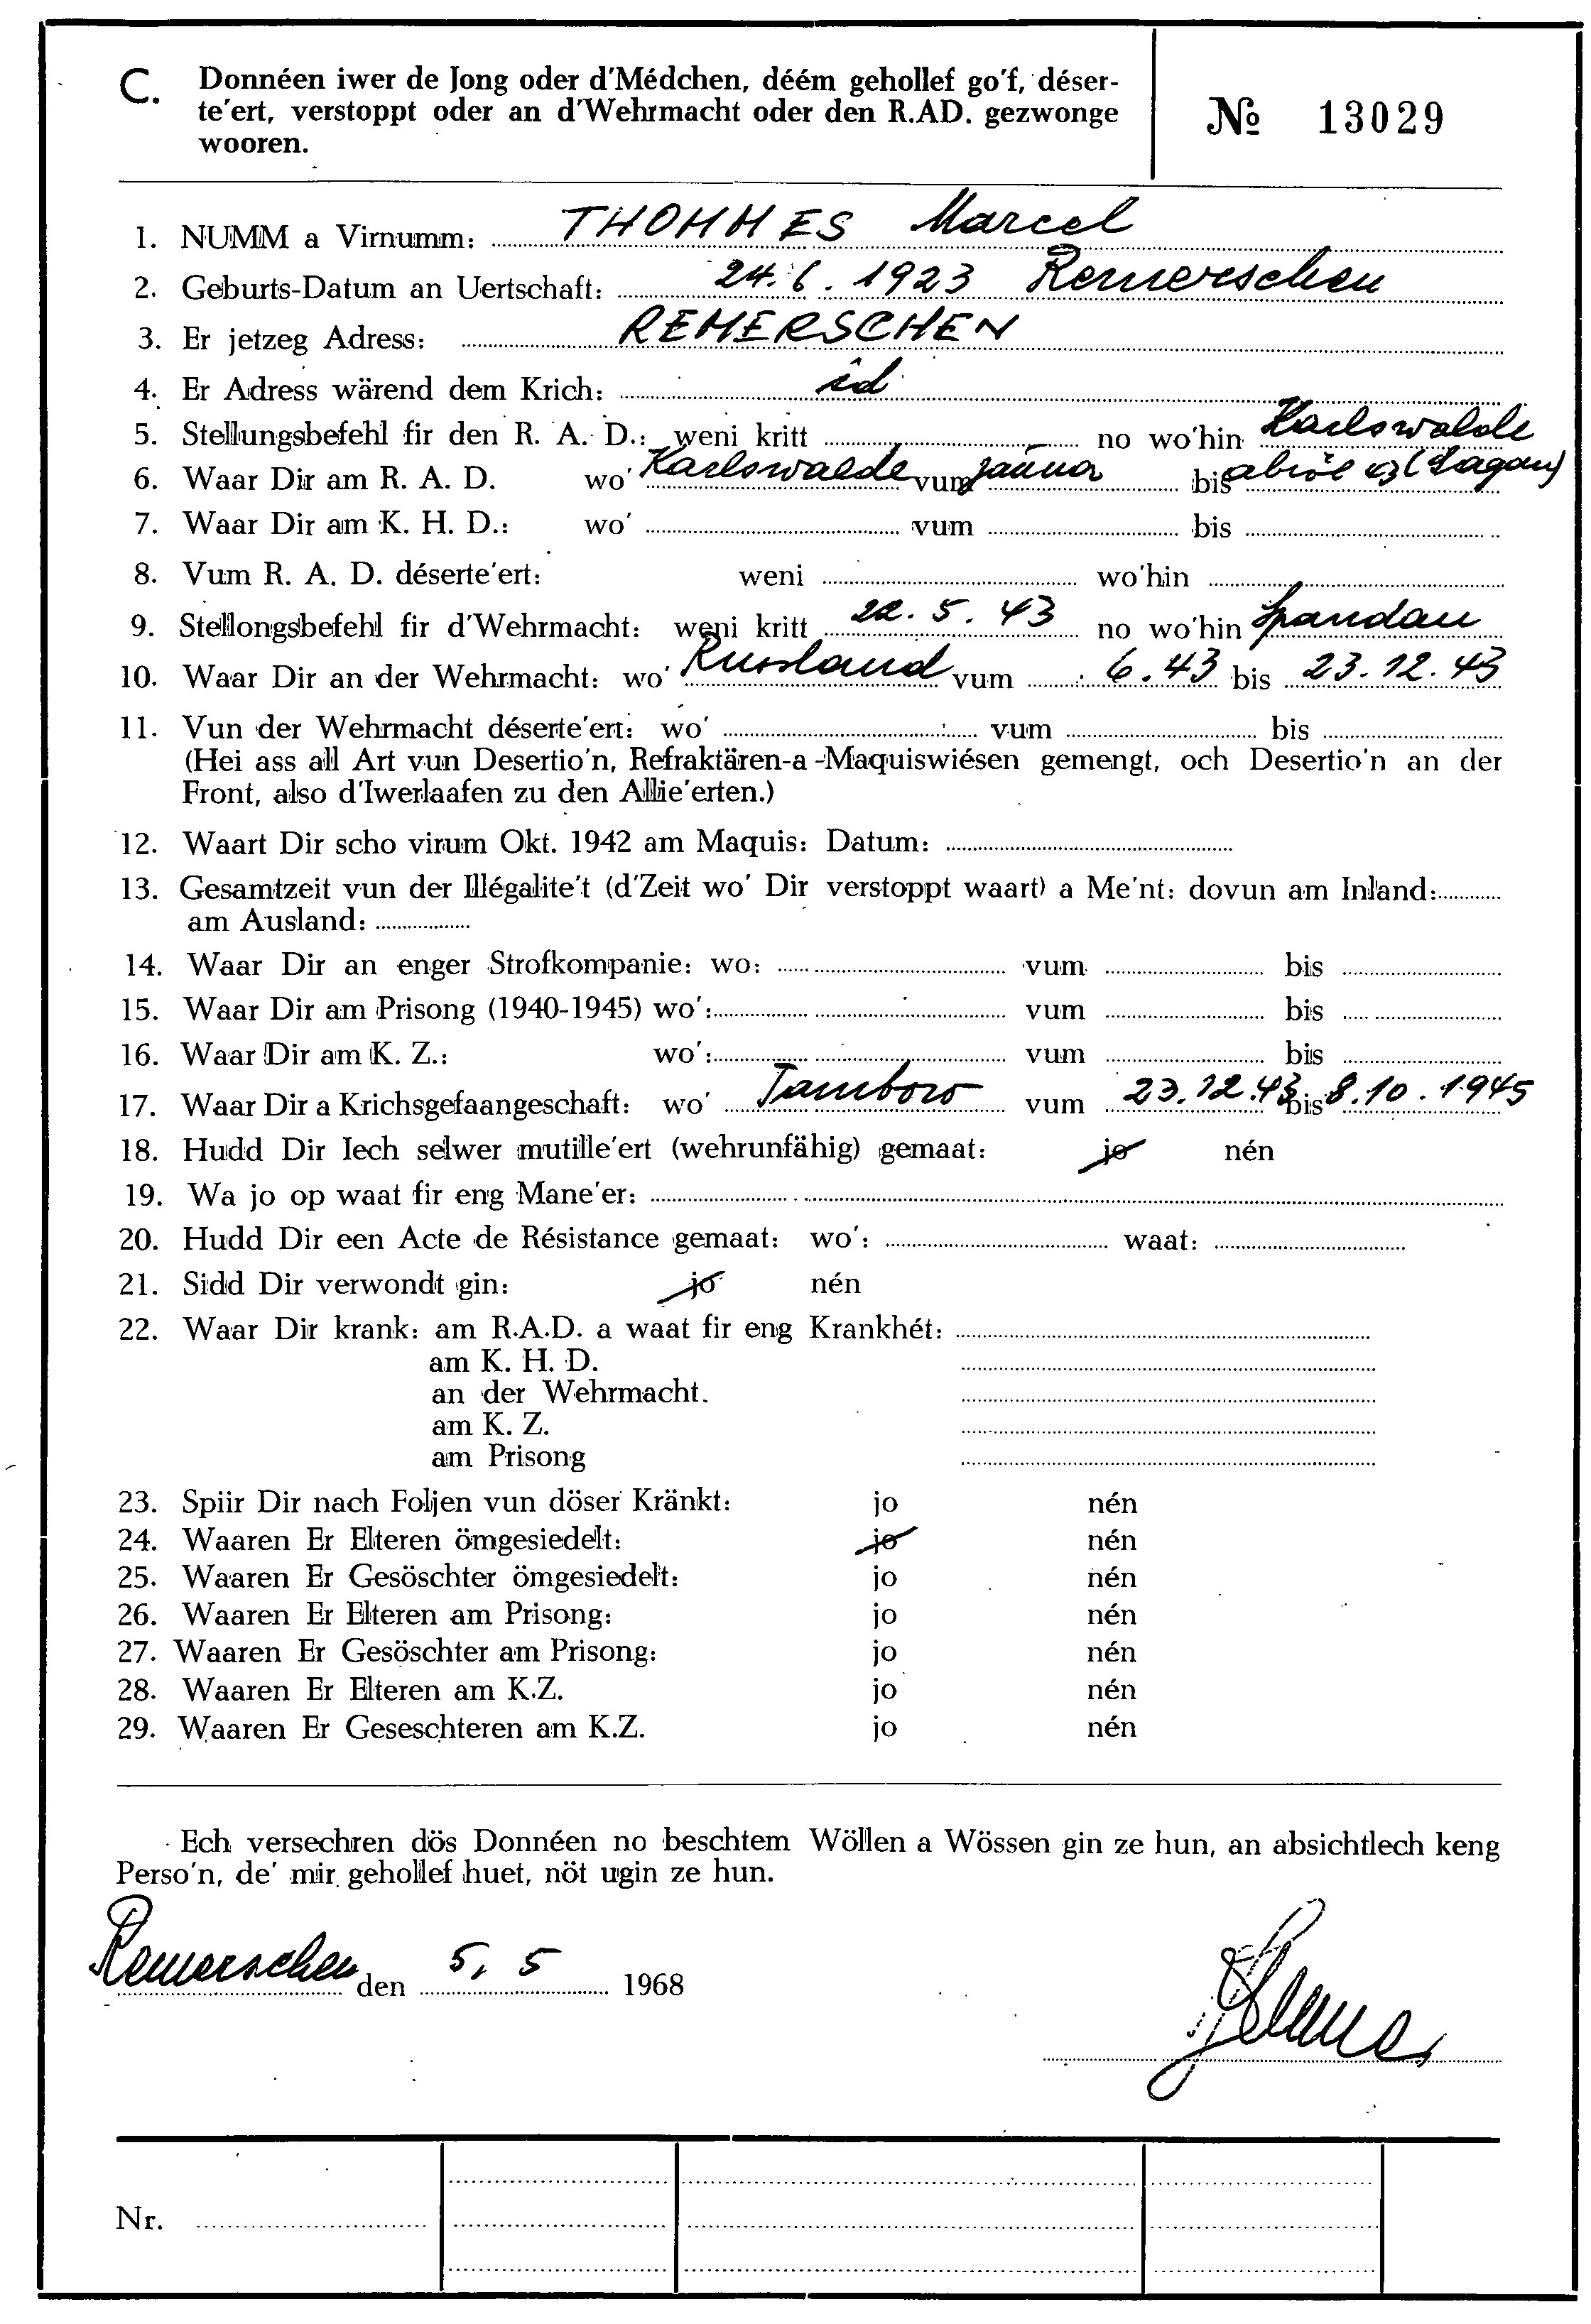 C. Donnéen iwer de Jong oder d'Médchen, déém gehollef go'f, déser-
te'ert, verstoppt oder an d'Wehrmacht oder den R.AD. gezwonge
wooren.
№ 13029
1. NUMM a Virnumm: THOMMES Marcel
2. Geburts-Datum an Uertschaft: 24.6.1923 Remerschen
3. Er jetzeg Adress: REMERSCHEN
4. Er Adress wärend dem Krich: id
5. Stellungsbefehl fir den R. A. D.: weni kritt no wo'hin Karlswalde
6. Waar Dir am R. A. D. wo' Karlswalde vum januar bis abril 43 (Sagan)
7. Waar Dir am K. H. D.: wo' vum bis
8. Vum R. A. D. déserte'ert: weni wo'hin
9. Stellongsbefehl fir d'Wehrmacht: weni kritt 22.5.43 no wo'hin Spandau
10. Waar Dir an der Wehrmacht: wo' Russland vum 6.43 bis 23.12.43
11. Vun der Wehrmacht déserte'ert: wo' vum bis
(Hei ass all Art vun Desertio'n, Refraktären-a-Maquiswiésen gemengt, och Desertio'n an der
Front, also d'Iwerlaafen zu den Allie'erten.)
12. Waart Dir scho virum Okt. 1942 am Maquis: Datum:
13. Gesamtzeit vun der Illégalite't (d'Zeit wo' Dir verstoppt waart) a Me'nt: dovun am Inland:
am Ausland:
14. Waar Dir an enger Strofkompanie: wo: vum bis
15. Waar Dir am Prisong (1940-1945) wo': vum bis
16. Waar Dir am K. Z.: wo': vum bis
17. Waar Dir a Krichsgefaangeschaft: wo' Tambow vum 23.12.43 bis 8.10.1945
18. Hudd Dir Iech selwer mutille'ert (wehrunfähig) gemaat: jo nén
19. Wa jo op waat fir eng Mane'er:
20. Hudd Dir een Acte de Résistance gemaat: wo': waat:
21. Sidd Dir verwondt gin: jo nén
22. Waar Dir krank: am R.A.D. a waat fir eng Krankhét:
am K. H. D.
an der Wehrmacht.
am K. Z.
am Prisong
23. Spiir Dir nach Foljen vun döser Kränkt: jo nén
24. Waaren Er Elteren ömgesiedelt: jo nén
25. Waaren Er Gesöschter ömgesiedelt: jo nén
26. Waaren Er Elteren am Prisong: jo nén
27. Waaren Er Gesöschter am Prisong: jo nén
28. Waaren Er Elteren am K.Z. jo nén
29. Waaren Er Geseschteren am K.Z. jo nén
Ech versechren dös Donnéen no beschtem Wöllen a Wössen gin ze hun, an absichtlech keng
Perso'n, de' mir gehollef huet, nöt ugin ze hun.
Remerschen den 5. 5 1968
Nr.